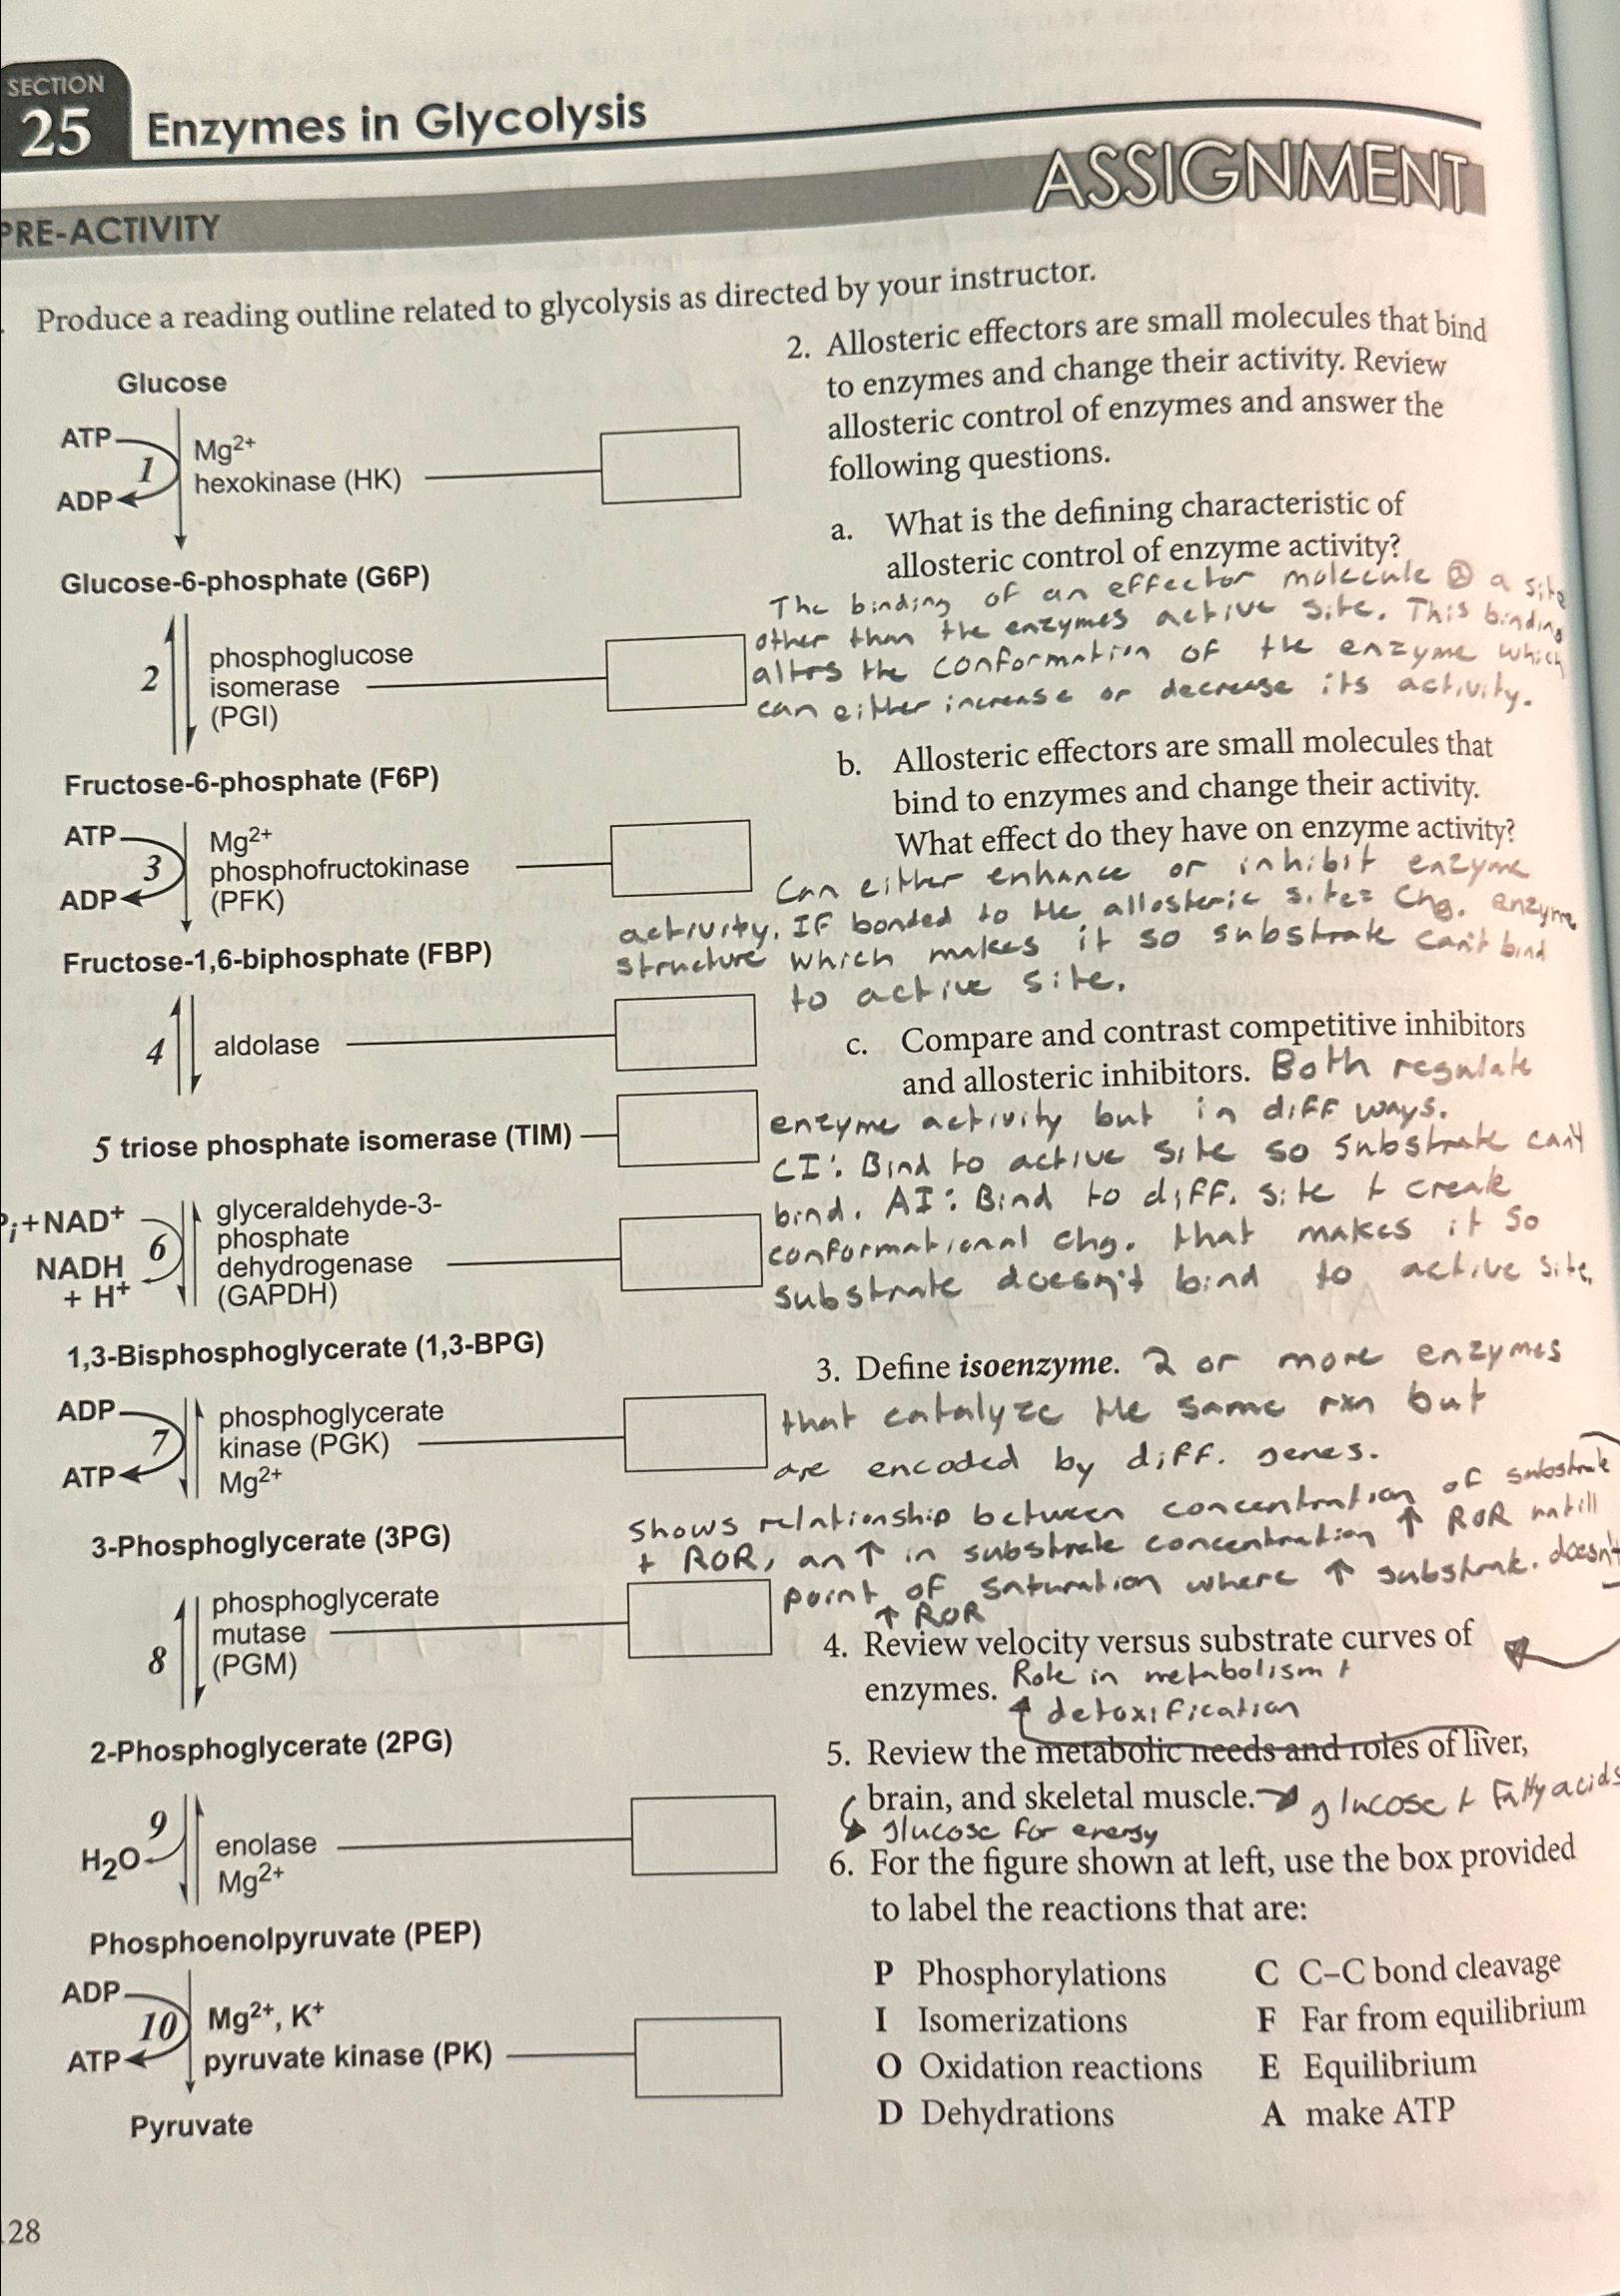 SECTION
25
Enzymes in Glycolysis
ASSIGNMENT
PRE-ACTIVITY
. Produce a reading outline related to glycolysis as directed by your instructor.
Glucose
ATP
1
ADP
Mg2+
hexokinase (HK)
Glucose-6-phosphate (G6P)
2
phosphoglucose
isomerase
(PGI)
Fructose-6-phosphate (F6P)
ATP
3
ADP
Mg2+
phosphofructokinase
(PFK)
Fructose-1,6-biphosphate (FBP)
4
aldolase
5 triose phosphate isomerase (TIM)
Pi+NAD+
6
NADH
+ H+
glyceraldehyde-3-
phosphate
dehydrogenase
(GAPDH)
1,3-Bisphosphoglycerate (1,3-BPG)
ADP
7
ATP
phosphoglycerate
kinase (PGK)
Mg2+
3-Phosphoglycerate (3PG)
8
phosphoglycerate
mutase
(PGM)
2-Phosphoglycerate (2PG)
9
H2O
enolase
Mg2+
Phosphoenolpyruvate (PEP)
ADP
10
ATP
Mg2+, K+
pyruvate kinase (PK)
Pyruvate
2. Allosteric effectors are small molecules that bind
to enzymes and change their activity. Review
allosteric control of enzymes and answer the
following questions.
a. What is the defining characteristic of
allosteric control of enzyme activity?
The binding of an effector molecule @ a site
other than the enzymes active site. This binding
altrs the conformation of the enzyme which
can either increase or decrease its activity.
b. Allosteric effectors are small molecules that
bind to enzymes and change their activity.
What effect do they have on enzyme activity?
Can either enhance or inhibit enzyme
activity. IF bonded to the allosteric site= Chg. enzyme
structure which makes it so substrate can't bind
to active site.
c. Compare and contrast competitive inhibitors
and allosteric inhibitors. Both regulate
enzyme activity but in diff ways.
CI: Bind to active site so substrate can't
bind. AI: Bind to diff. site + create
conformational chg. that makes it so
substrate doesn't bind to active site.
3. Define isoenzyme. 2 or more enzymes
that catalyze the same rxn but
are encoded by diff. genes.
Shows relationship between concentration of substrate
+ ROR, an ↑ in substrate concentration ↑ ROR untill
point of saturation where ↑ substrate. doesn't
↑ ROR
4. Review velocity versus substrate curves of
enzymes. Role in metabolism +
detoxification
5. Review the metabolic needs and roles of liver,
brain, and skeletal muscle. → glucose + Fatty acids
glucose for energy
6. For the figure shown at left, use the box provided
to label the reactions that are:
P Phosphorylations C C–C bond cleavage
I Isomerizations F Far from equilibrium
O Oxidation reactions E Equilibrium
D Dehydrations A make ATP
128